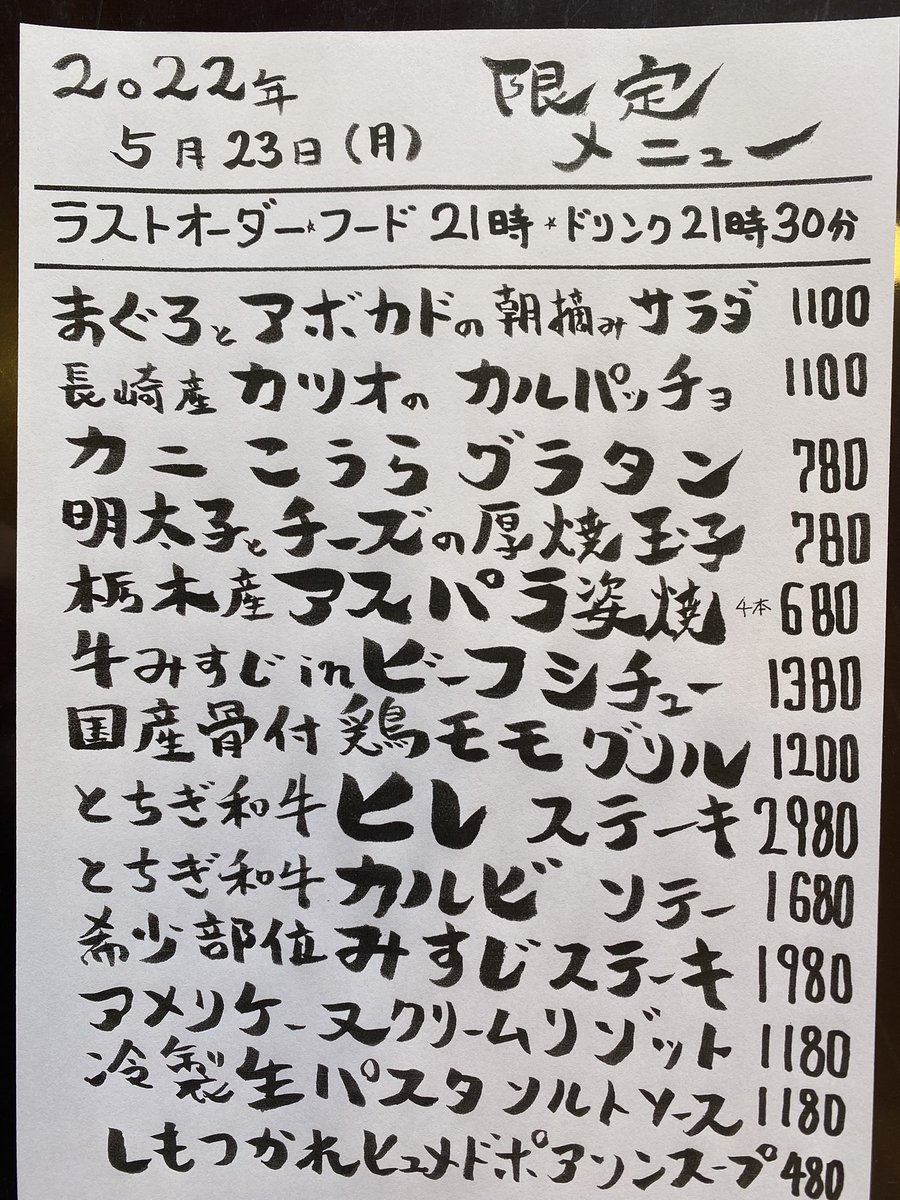 2022年 限定
5月23日(月) メニュー
ラストオーダー*フード21時*ドリンク21時30分
まぐろとアボカドの朝摘みサラダ 1100
長崎産カツオのカルパッチョ 1100
カニこうらグラタン 780
明太子とチーズの厚焼玉子 780
栃木産アスパラ姿焼 4本 680
牛みすじinビーフシチュー 1380
国産骨付鶏モモグリル 1200
とちぎ和牛ヒレステーキ 2980
とちぎ和牛カルビソテー 1680
希少部位みすじステーキ 1980
アメリケーヌクリームリゾット 1180
冷製生パスタソルトソース 1180
しもつかれヒュメドポアソンスープ 480